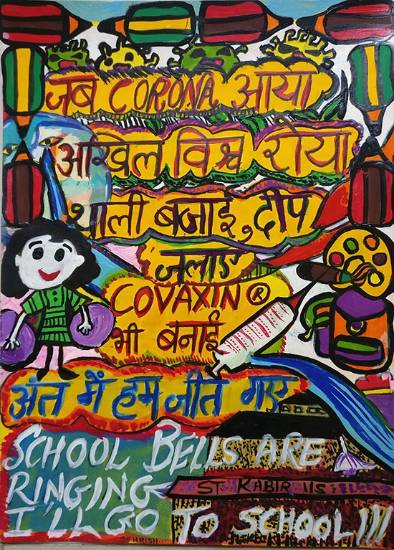 जब CORONA आया
अखिल विश्व रोया
थाली बजाई, दीप
जलाए
COVAXIN®
भी बनाई
अंत में हम जीत गए
SCHOOL BELLS ARE
RINGING
ST. KABIR
I'LL GO TO SCHOOL!!!